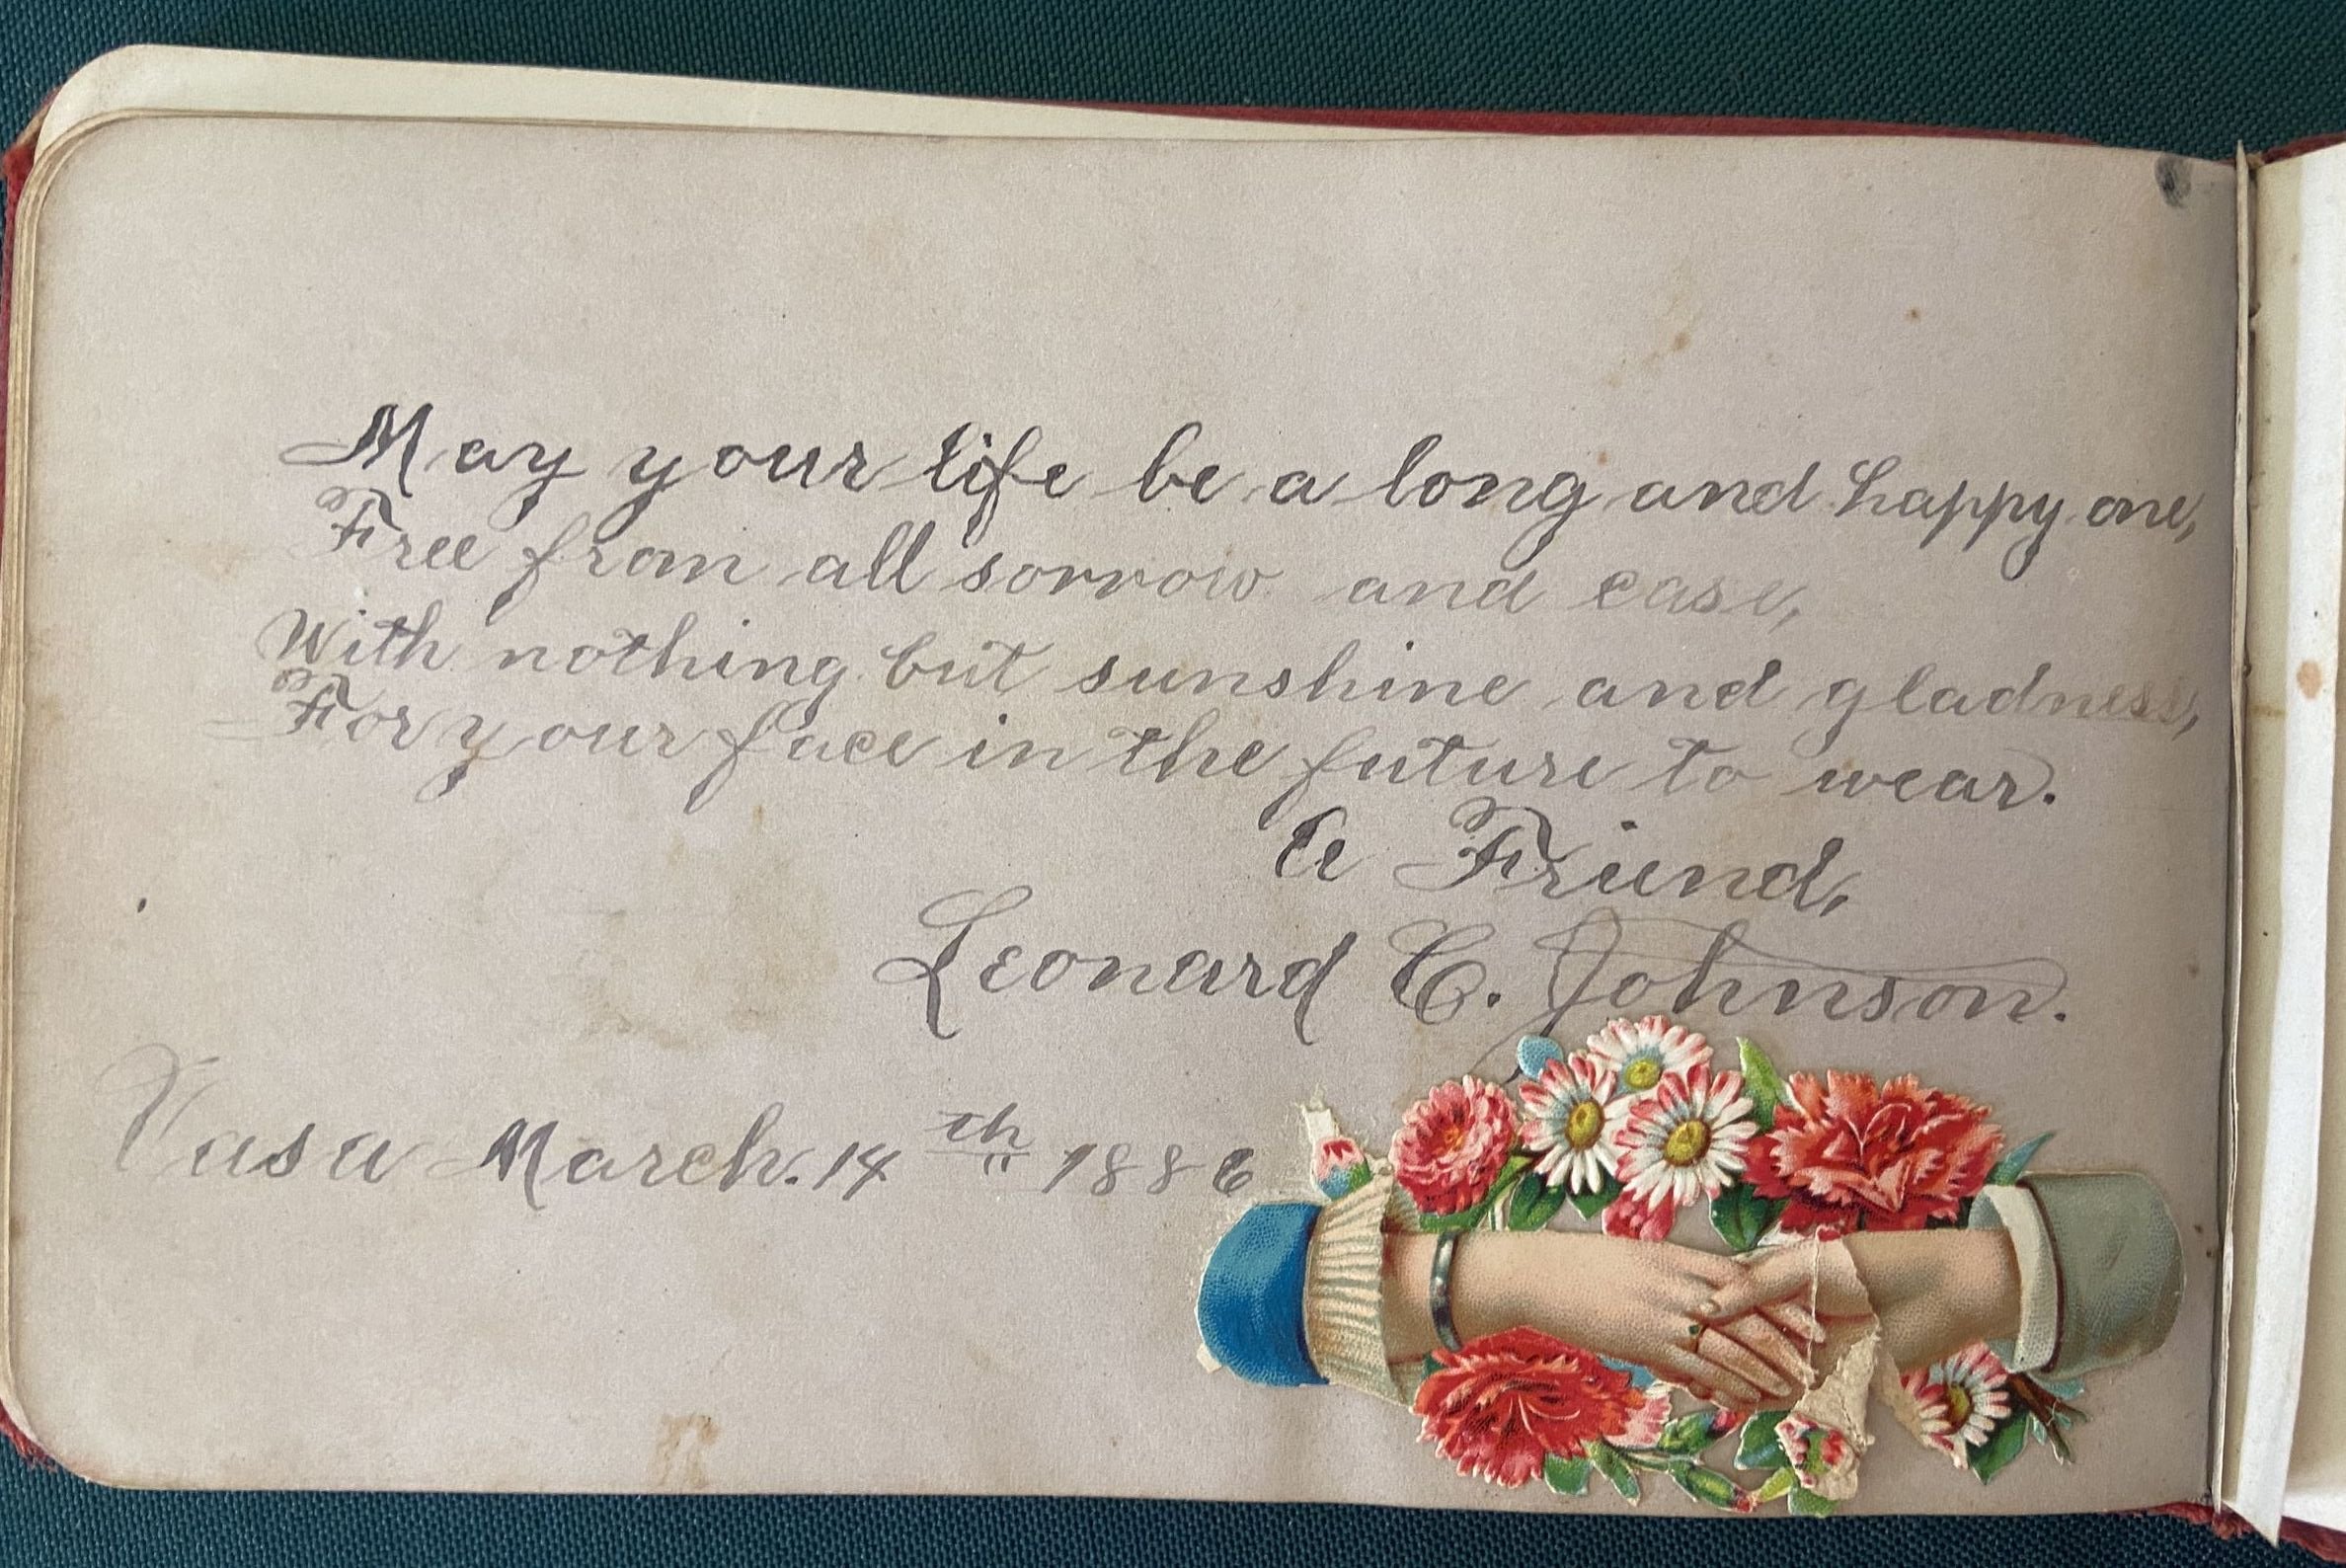 May your life be a long and happy one,
Free from all sorrow and ease,
With nothing but sunshine and gladness,
For your face in the future to wear.
A Friend,
Leonard C. Johnson.
Vasa March. 14th 1886